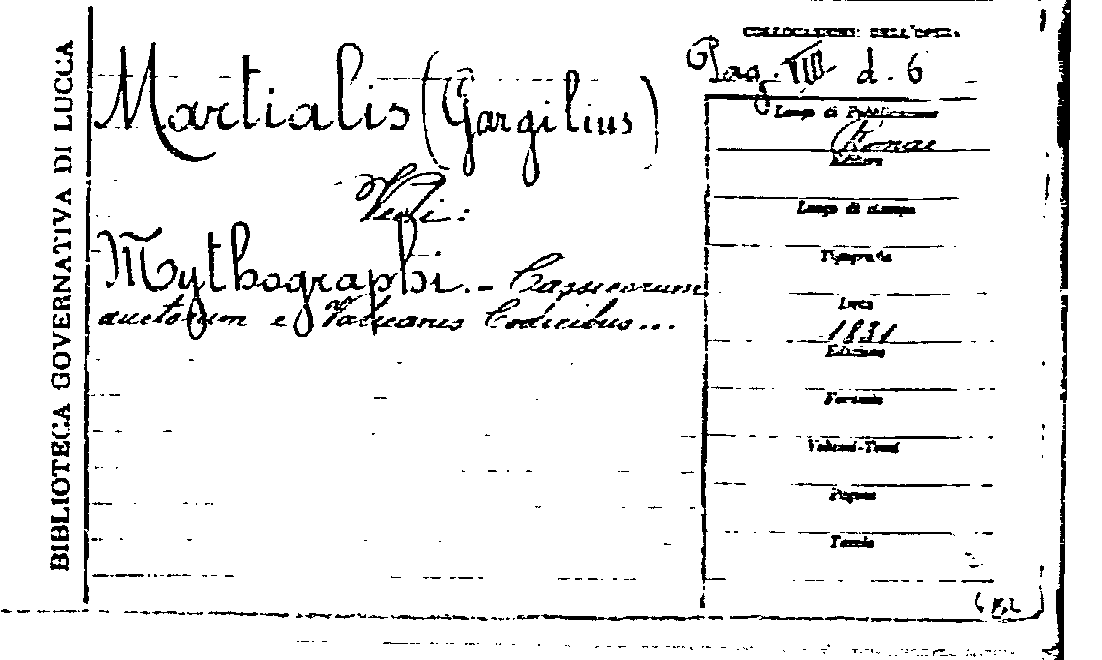 BIBLIOTECA GOVERNATIVA DI LUCCA
COLLOCAZIONE DELL'OPERA
Pag. VIII d. 6
Martialis (Gargilius)
Vedi:
Mythographi. - Classicorum
auctorum e Vaticanis Codicibus...
Luogo di Pubblicazione
Romae
Editore
Luogo di stampa
Tipografia
Data
1831
Edizione
Formato
Volumi-Tomi
Pagine
Tavole